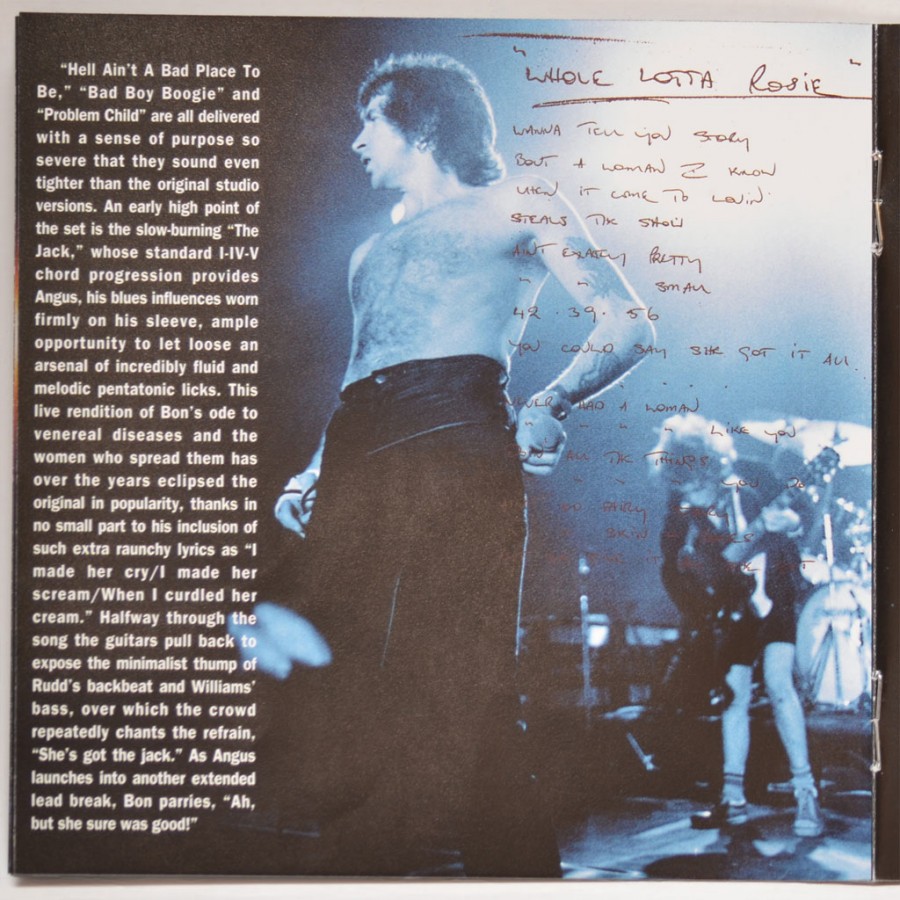 “Hell Ain’t A Bad Place To
Be,” “Bad Boy Boogie” and
“Problem Child” are all delivered
with a sense of purpose so
severe that they sound even
tighter than the original studio
versions. An early high point of
the set is the slow-burning “The
Jack,” whose standard I-IV-V
chord progression provides
Angus, his blues influences worn
firmly on his sleeve, ample
opportunity to let loose an
arsenal of incredibly fluid and
melodic pentatonic licks. This
live rendition of Bon’s ode to
venereal diseases and the
women who spread them has
over the years eclipsed the
original in popularity, thanks in
no small part to his inclusion of
such extra raunchy lyrics as “I
made her cry/I made her
scream/When I curdled her
cream.” Halfway through the
song the guitars pull back to
expose the minimalist thump of
Rudd’s backbeat and Williams’
bass, over which the crowd
repeatedly chants the refrain,
“She’s got the jack.” As Angus
launches into another extended
lead break, Bon parries, “Ah,
but she sure was good!”
"WHOLE LOTTA ROSIE"
WANNA TELL YOU STORY
BOUT A WOMAN I KNOW
WHEN IT COME TO LOVIN'
STEALS THE SHOW
AINT EXATCLY PRETTY
" " SMALL
42 . 39 . 56
YOU COULD SAY SHE GOT IT ALL
NEVER HAD A WOMAN
" " " " LIKE YOU
ALL THE THINGS
" " " YOU DO
FAIRY STORY
SKIN